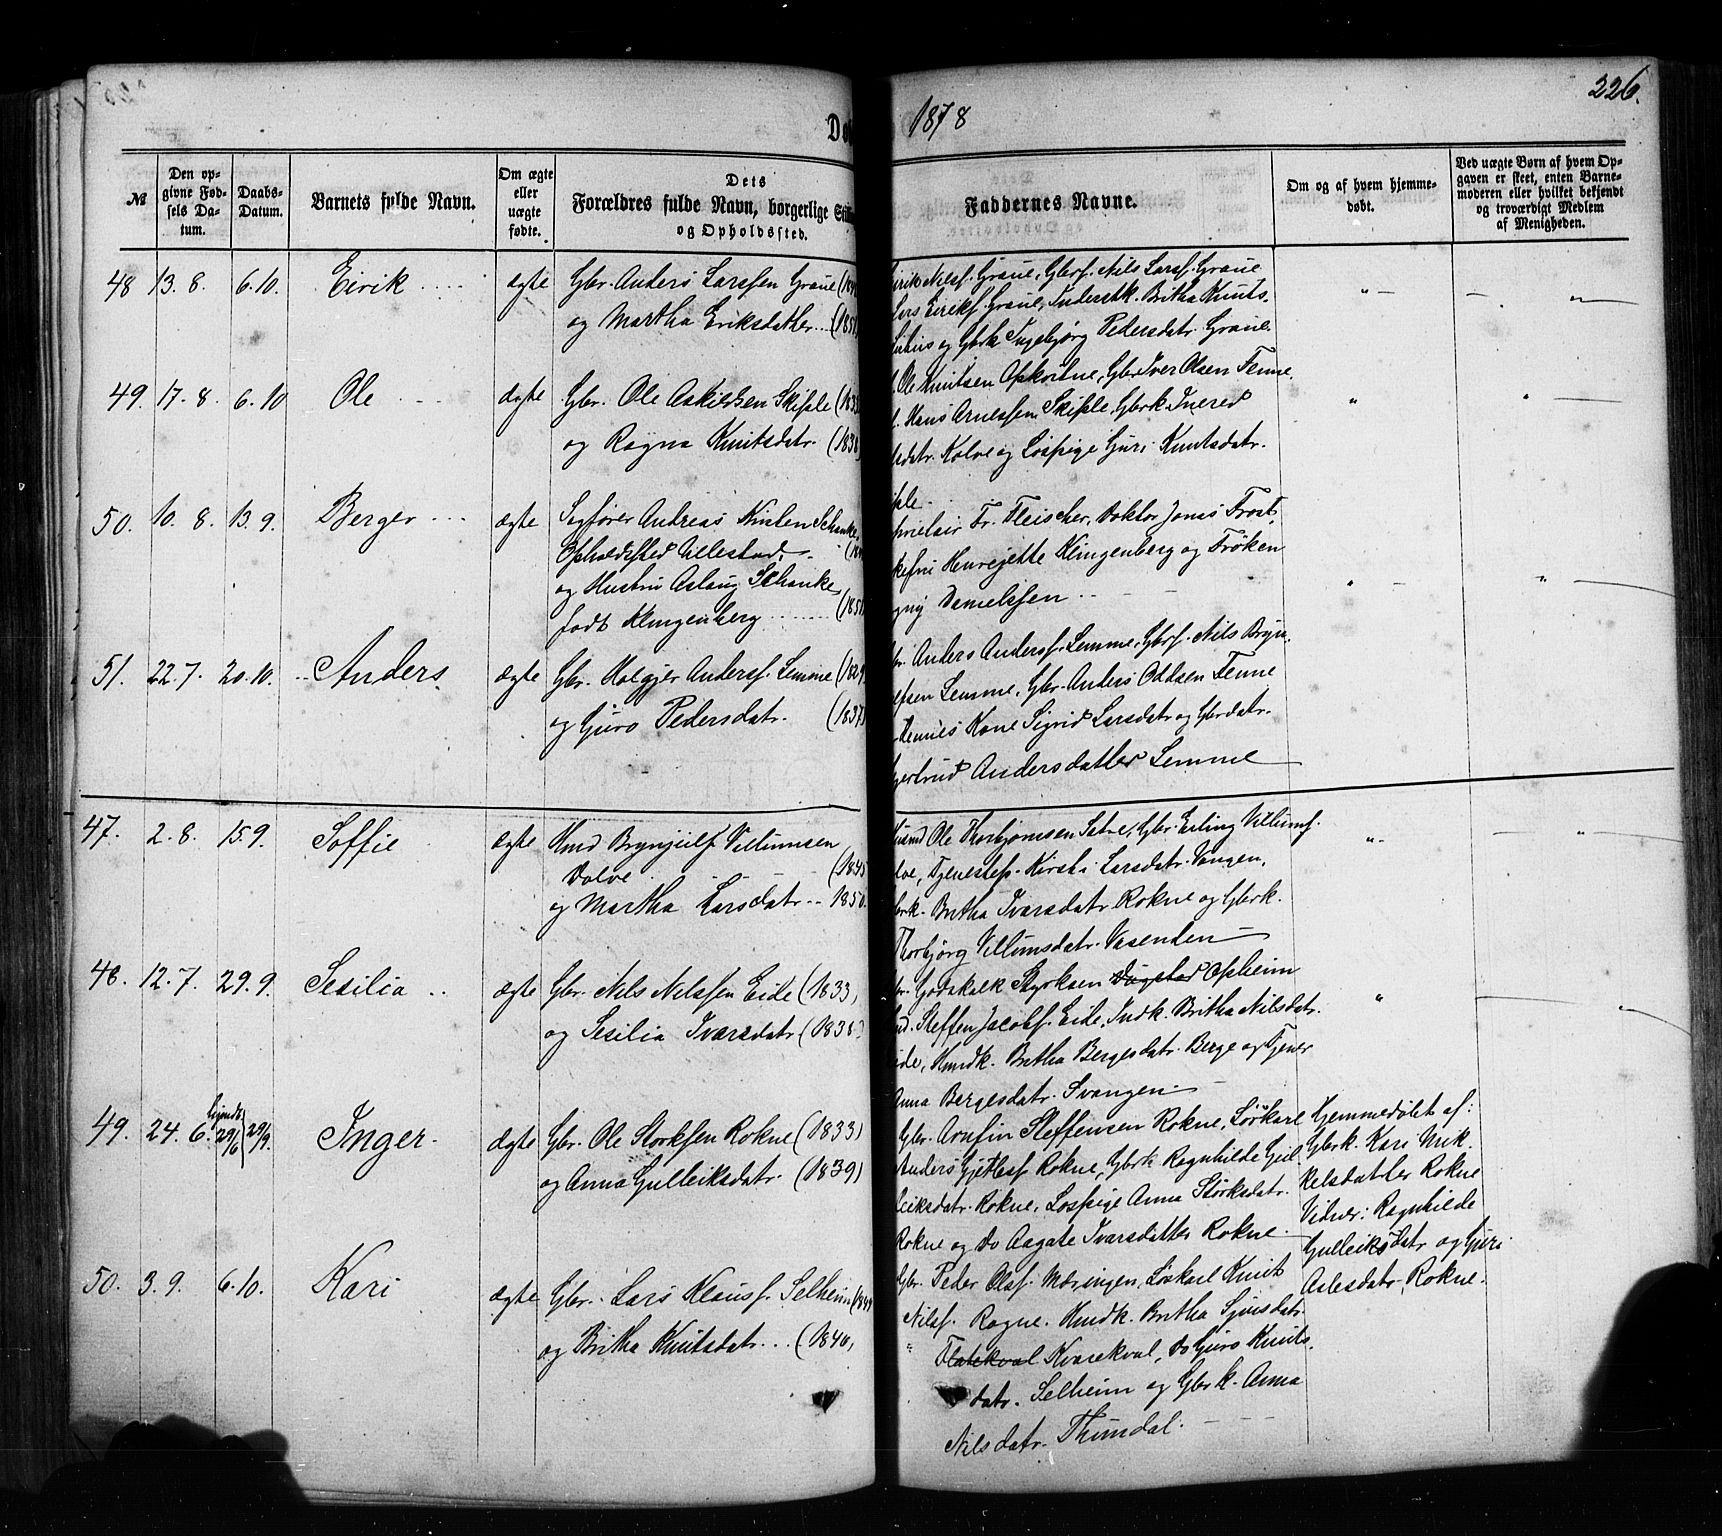 226.
De
1878
№
Den op-
givne Fød-
sels Da-
tum.
Daabs-
Datum.
Barnets fulde Navn.
Om ægte
eller
uægte
fødte.
Dets
Forældres fulde Navn, borgerlige
og Opholdssted.
Faddernes Navne.
Om og af hvem hjemme-
døbt.
Ved uægte Børn af hvem Op-
gaven er skeet, enten Barne-
moderen eller hvilket bekjendt
og troværdigt Medlem
af Menigheden.
48 13. 8. 6. 10. Eirik ægte Gbr. Anders Larssen Graue
og Martha Eriksdatter
Nilsf. Graue, Gbrf. Nils Larsf. Graue
Eirikf. Graue, Inderstk. Britha Knuts-
og Gbrk Ingebjørg Pedersdatr. Graue.
49. 17. 8. 6. 10 Ole ægte Gbr. Ole Askildsen Skiple
og Ragna Knutsdatr. (1838
Ole Knutsen Gbr. Iver Olsen Tenne.
Hans Arnessen Skiple, Gbrk
Kolve og Løspige Guri Knutsdatr.
50. 10. 8. 13. 9. Berger ægte Sagfører Andreas Schanke
Opholdssted Ullestad
og Hustru Aslaug Schanke
født Klingenberg
Fr. Fleischer, Doktor Jonas Frost,
Klingenberg og Frøken
Danielssen
51. 22. 7. 20. 10. Anders ægte Gbr. Holgjer Andersf. Lemme
og Guro Pedersdatr. (1837)
Anders Andersf. Lemme, Gbrf. Nils Bryn-
Lemme, Gbr. Anders Oddsen Tenne
Kone Sigrid Larsdatr og Gbrdatr.
Andersdatter Lemme
47. 2. 8. 15. 9. Soffie ægte Hmd Brynjulf Villumsen
Dolve (1845
og Martha Larsdatr 1850.
Ole Thorbjørnsen Gbr. Erling Villumf.
Kirsti Larsdatr. Vangen,
Britha Ivarsdatr. Rokne og Gbrk.
Thorbjørg Villumsdatr. Vasenden
48. 12. 7. 29. 9. Sesilia ægte Gbr. Nils Nilssen Eide (1833)
og Sesilia Ivarsdatr (1838)
Godskalk Styrksen Opheim
Steffen Jacobf. Eide, Indk. Britha Nilsdatr.
Hmdk. Britha Bergesdatr. Berge og Tjener
Anna Bergesdatr. Svangen
49. 24. 6. 29/6 29/9. Inger ægte Gbr. Ole Storksen Rokne (1833)
og Anna Gulleiksdatr. (1839)
Gbr. Arnfin Steffensen Rokne, Løskarl
Anders Rokne, Gbrk Ragnhilde Gul-
leiksdatr. Rokne, Løspige Anna Størksdatr.
Rokne og Do Aagate Ivarsdatter Rokne
Hjemmedøbt af:
Gbrk. Kari Mik-
kelsdatter Rokne
Vidner: Ragnhilde
Gulleiksdatr og Guri
Aslesdatr. Rokne.
50. 3. 9. 6. 10. Kari ægte Gbr. Lars Klausf. Selheim
og Britha Knutsdatr (1840)
Gbr. Peder Olsf. Løskarl Knut
Nilsf. Rogne. Hmdk. Britha Sjursdatr.
Kvarekval, Do Guro Knuts-
datr. Selheim og Gbrk. Anna
Nilsdatr.